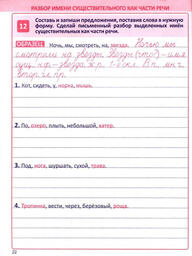 РАЗБОР ИМЕНИ СУЩЕСТВИТЕЛЬНОГО КАК ЧАСТИ РЕЧИ
12 Составь и запиши предложения, поставив слова в нужную
форму. Сделай письменный разбор выделенных имён
существительных как части речи.
ОБРАЗЕЦ Ночь, мы, смотреть, на, звезда. Ночью мы
смотрели на звёзды. Звёзды (что?) – имя
сущ., н.ф. – звезда, ж.р., 1-е скл., В.п., мн.ч.,
втор. чл. пр.
1. Кот, сидеть, у, норка, мышь.
2. По, озеро, плыть, небольшой, катер.
3. Под, нога, шуршать, сухой, трава.
4. Тропинка, вести, через, берёзовый, роща.
22